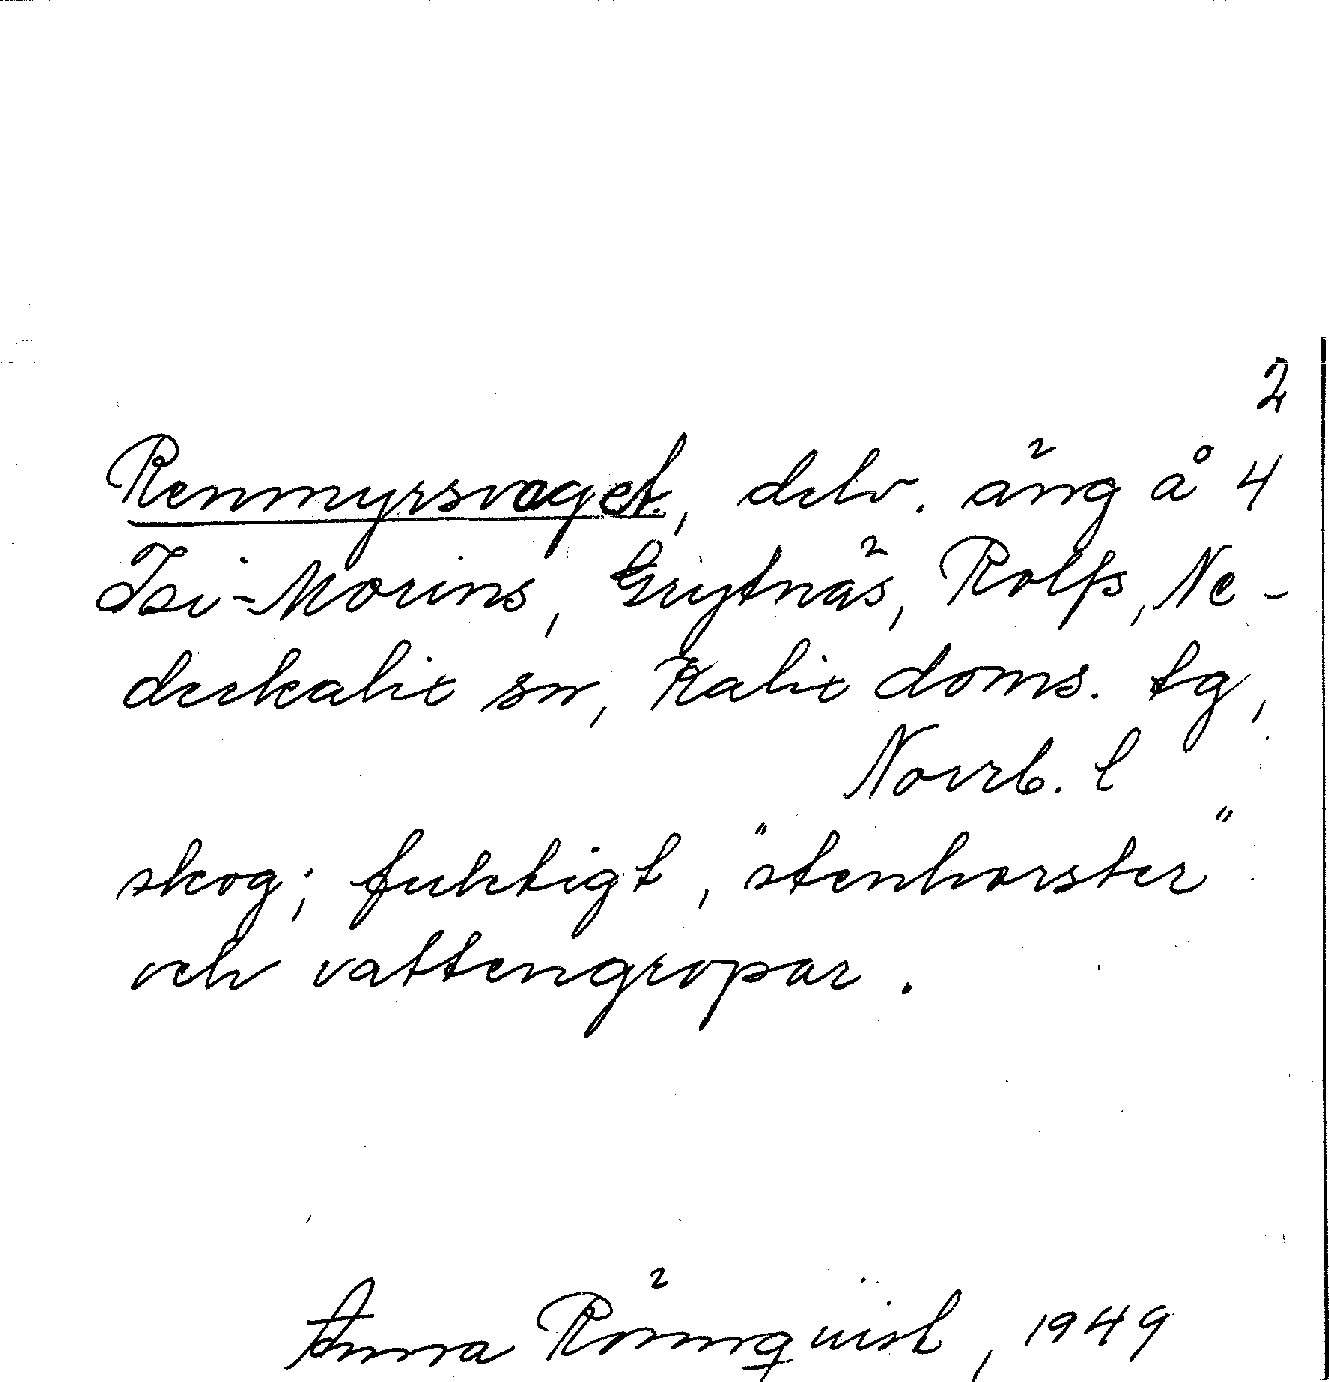 Renmyrsvaget, delv. äng å 4²
Isi-Morins, Grytnäs, Rolfs, Ne-
derkalix sn, Kalix doms. tg,
Norrb. l
skog; fuktigt, "stenhorster"
och vattengropar.
Anna Römquist, 1949